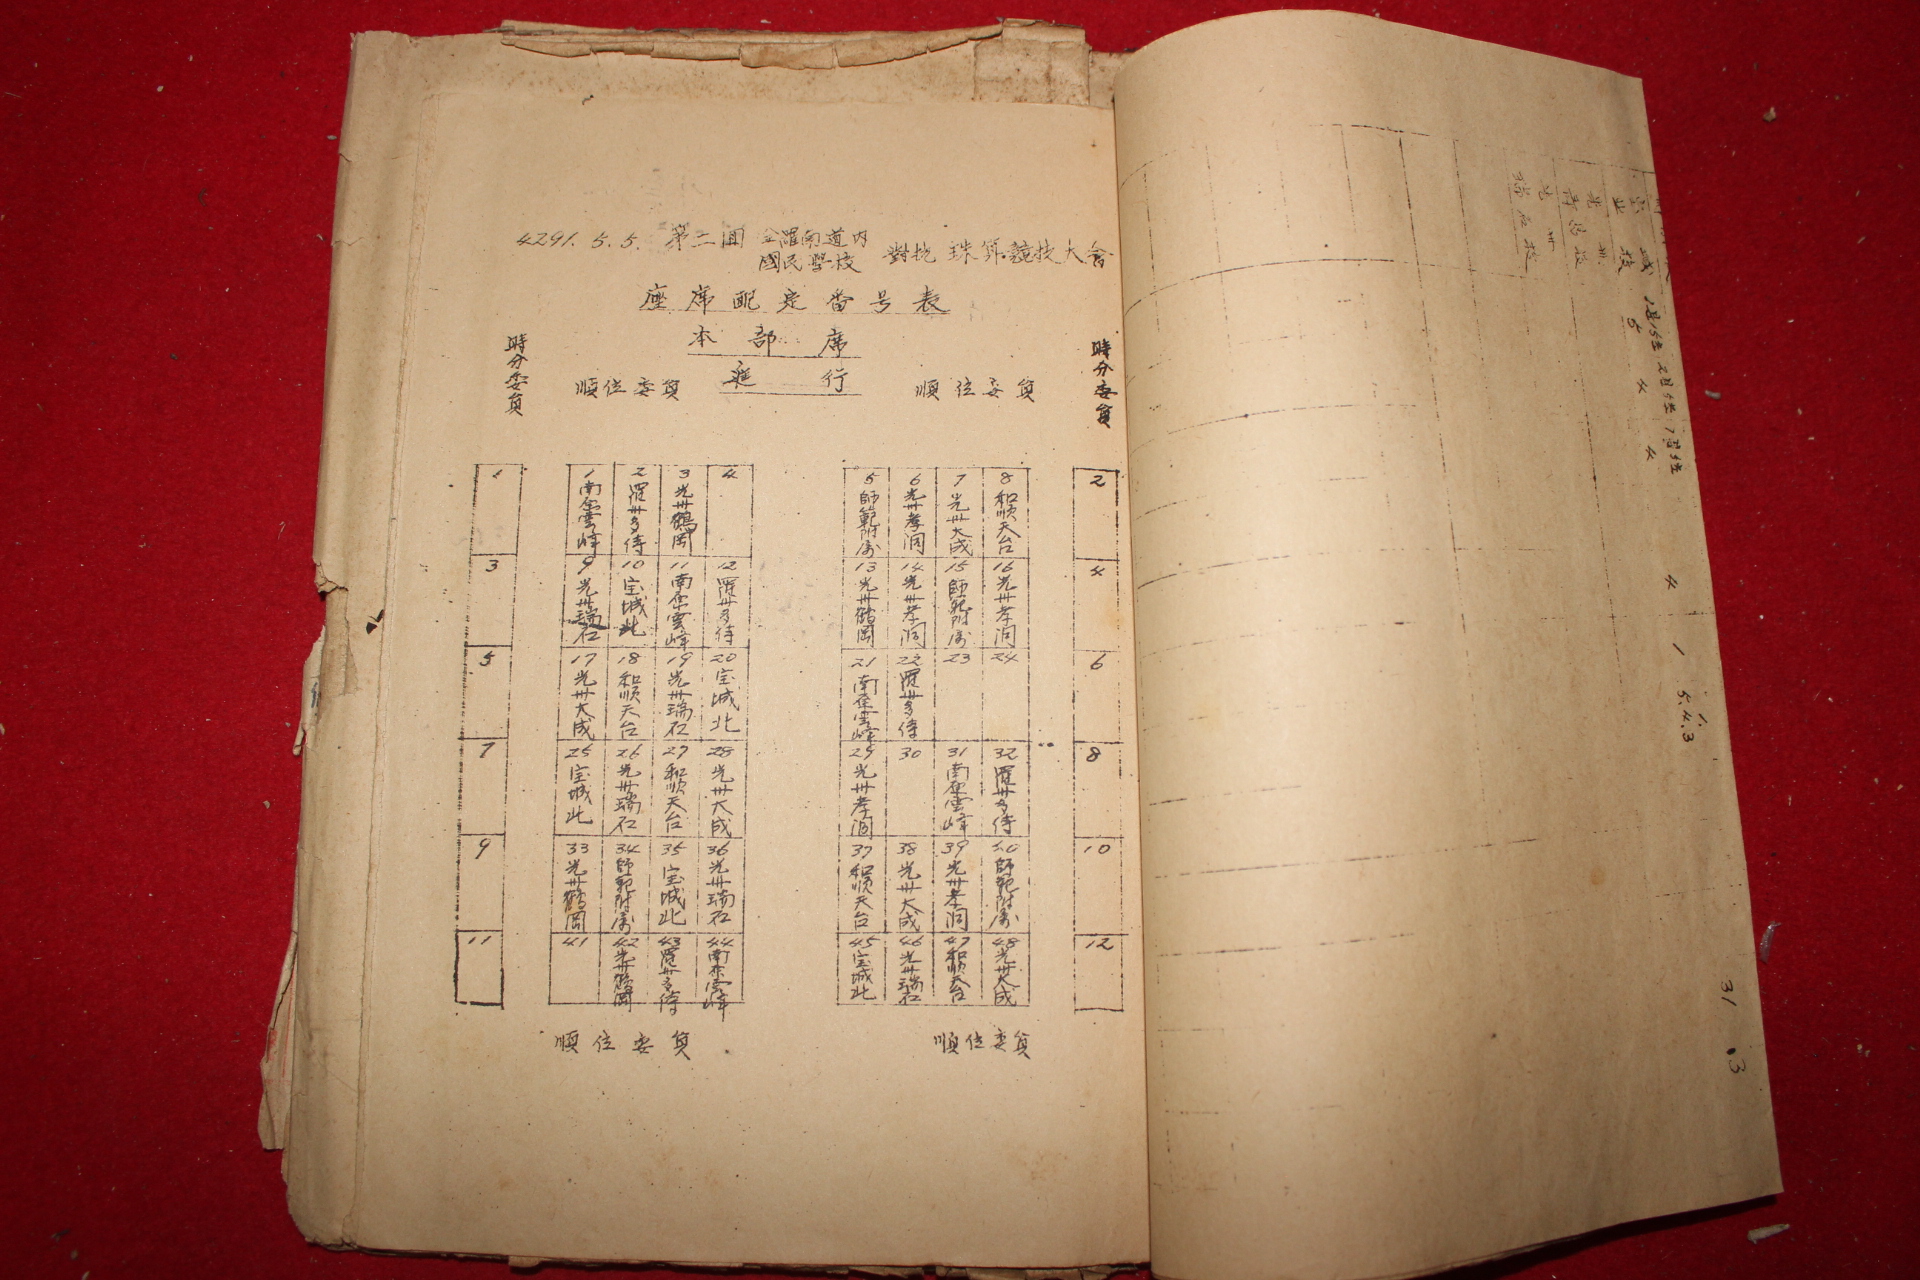 4291. 5. 5. 第二回 全羅南道內 國民學校 對抗 珠算競技大會
座席配定番号表
本部席
進行
時分委員
順位委員
順位委員
時分委員
1
1 南原雲峰
2 羅州多侍
3 光州鶴岡
4
5 師範附属
6 光州孝洞
7 光州大成
8 和順天台
2
3
9 光州瑞石
10 宝城北
11 南原雲峰
12 羅州多侍
13 光州鶴岡
14 光州孝洞
15 師範附属
16 光州孝洞
4
5
17 光州大成
18 和順天台
19 光州瑞石
20 宝城北
21 南原雲峰
22 羅州多侍
23
24
6
7
25 宝城北
26 光州瑞石
27 和順天台
28 光州大成
29 光州孝洞
30
31 南原雲峰
32 羅州多侍
8
9
33 光州鶴岡
34 師範附属
35 宝城北
36 光州瑞石
37 和順天台
38 光州大成
39 光州孝洞
40 師範附属
10
11
41
42 光州鶴岡
43 羅州多侍
44 南原雲峰
45 宝城北
46 光州瑞石
47 和順天台
48 光州大成
12
順位委員
順位委員